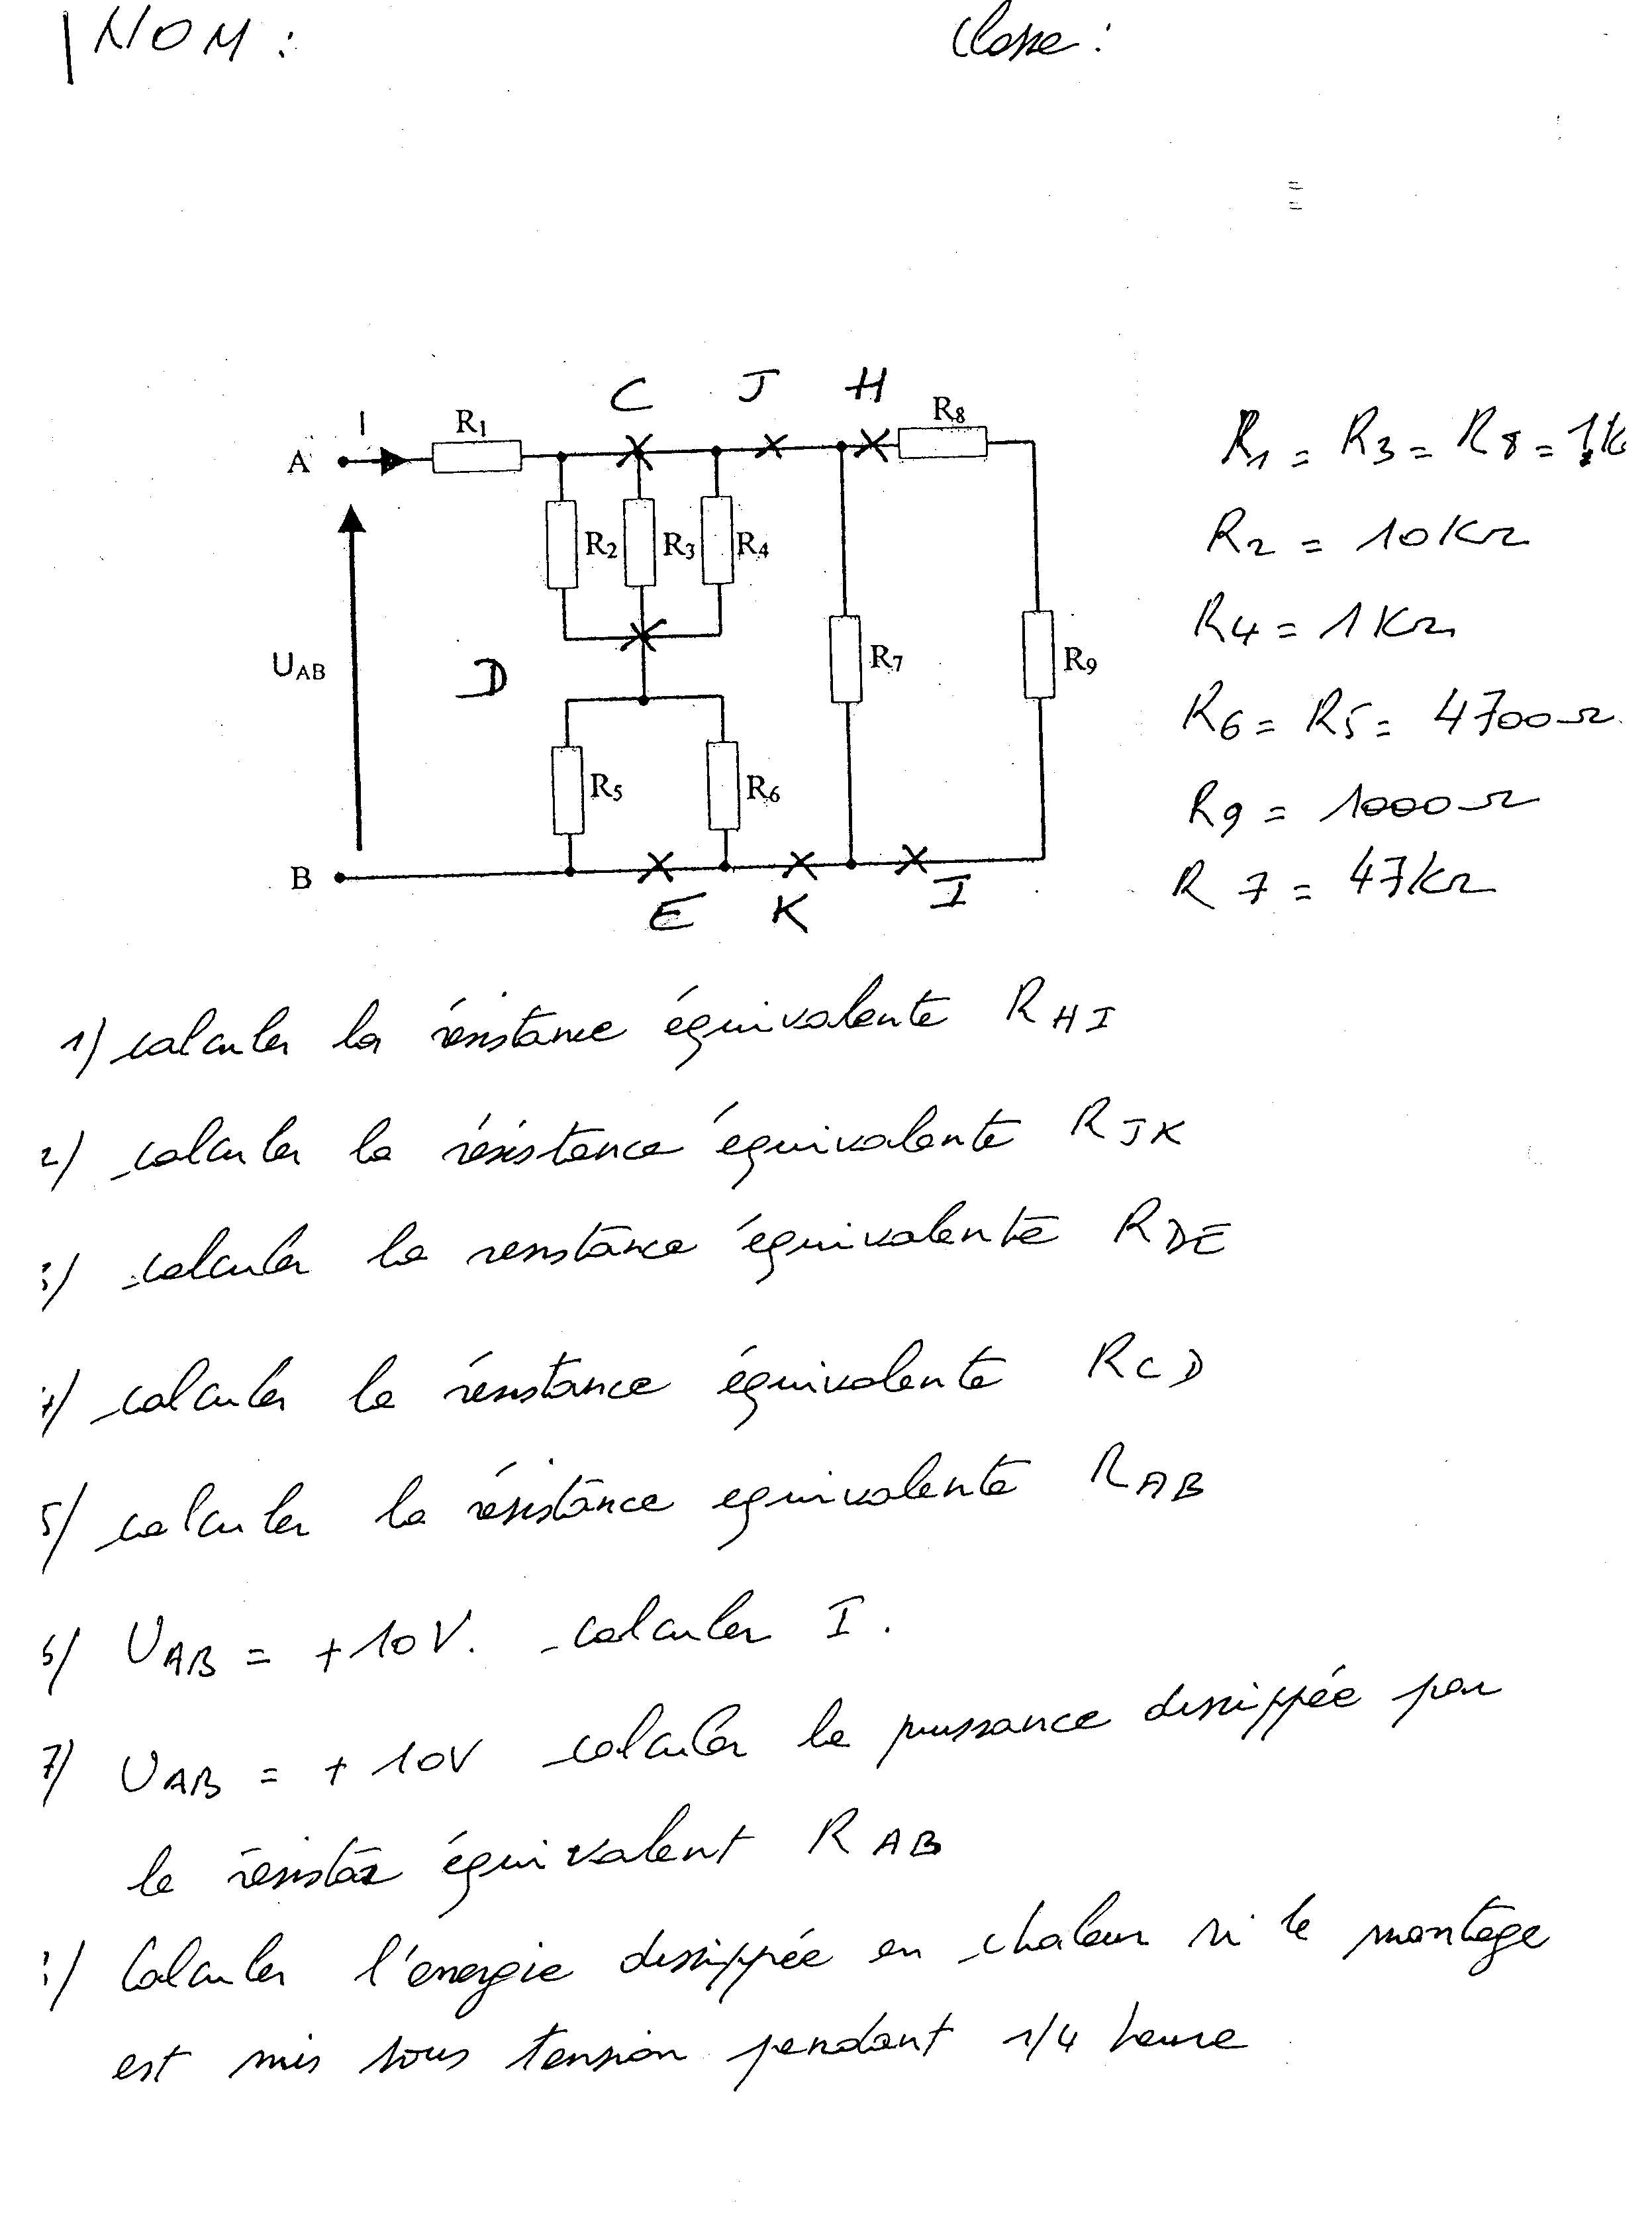 NOM :
Classe :
C J H
I R1 R8
A
R1 = R3 = R8 = 1K
R2 R3 R4
R2 = 10KΩ
R4 = 1KΩ
UAB D R7 R9
R6 = R5 = 4700Ω
R5 R6
R9 = 1000Ω
B
E K I
R7 = 47KΩ
1) calculer la résistance équivalente RHI
2) calculer la résistance équivalente RJK
3) calculer la resistance équivalente RDE
4) calculer la résistance équivalente RCD
5) calculer la résistance equivalente RAB
6) UAB = +10V. calculer I.
7) UAB = +10V calculer la puissance dissippée par
le équivalent RAB
Calculer l'énergie dissippée en chaleur si le montage
est mis sous tension pendant 1/4 heure